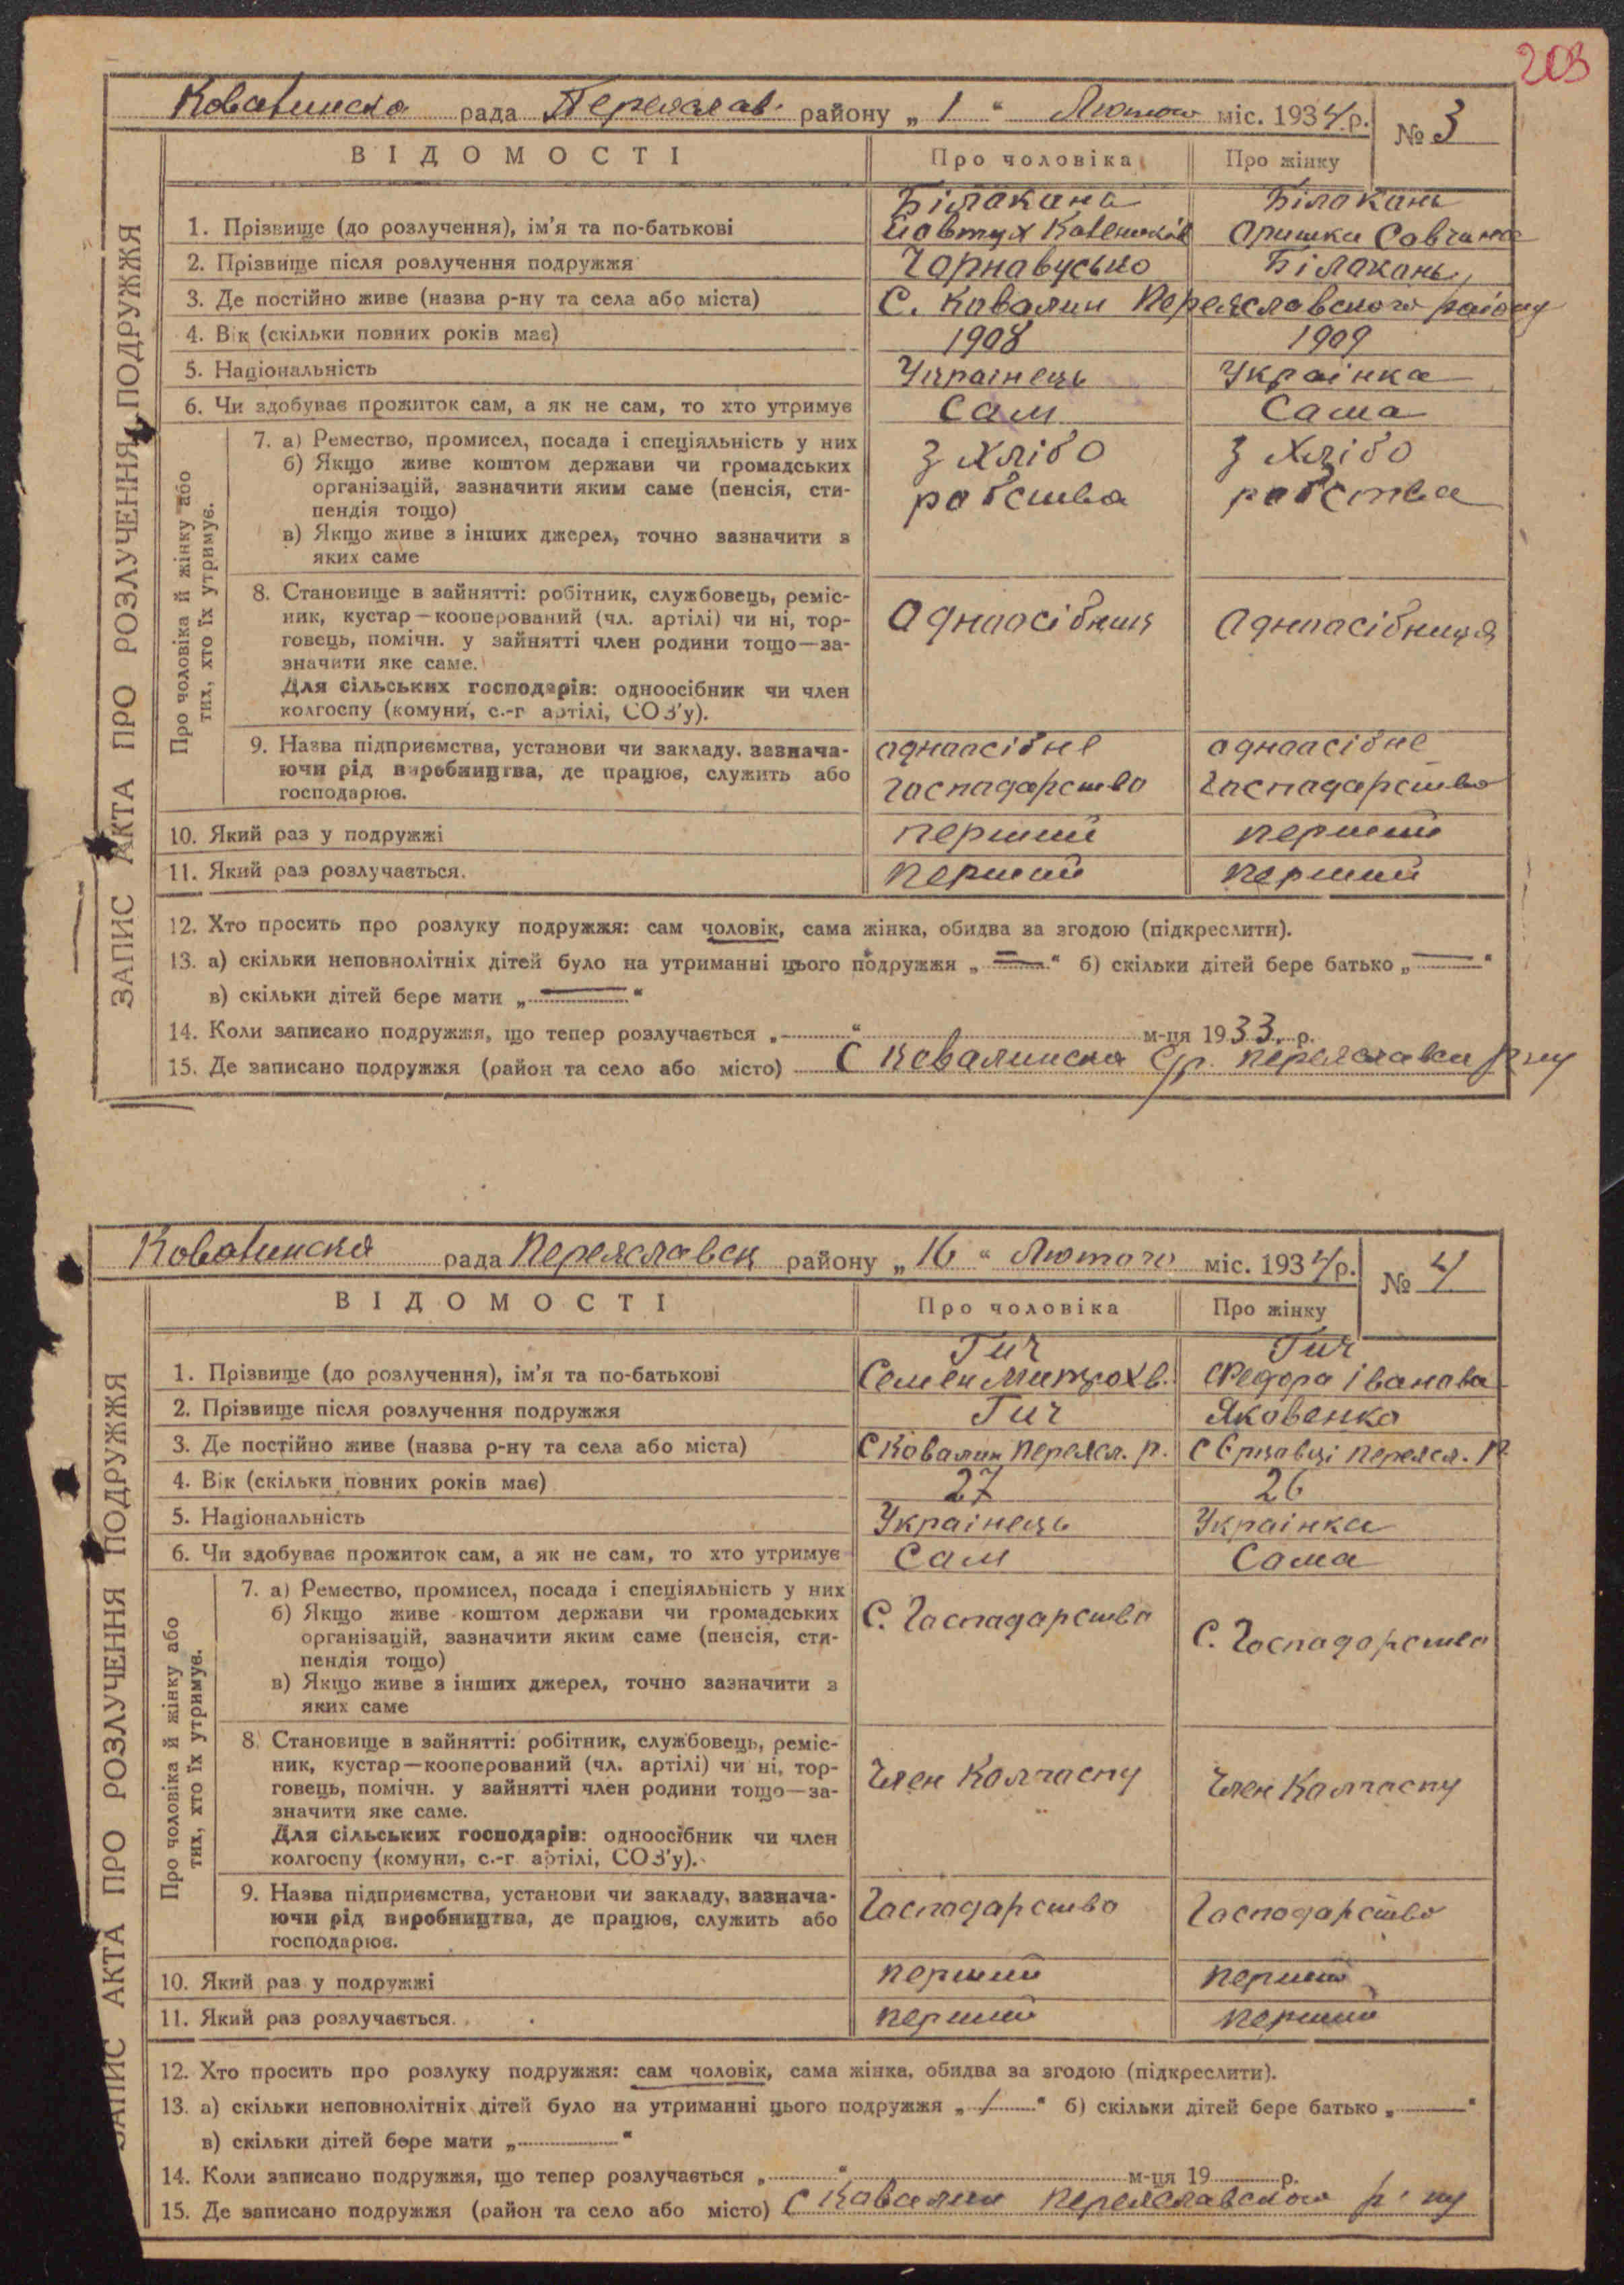 203
Ковалинска рада Переяслав. району „ 1 “ Лютого міс. 1934 р. № 3
ЗАПИС АКТА ПРО РОЗЛУЧЕННЯ ПОДРУЖЖЯ
ВІДОМОСТІ Про чоловіка Про жінку
Білакань
1. Прізвище (до розлучення), ім'я та по-батькові Явтух Оришка
2. Прізвище після розлучення подружжя Чорнавусько Білакань
3. Де постійно живе (назва р-ну та села або міста) С. Ковалин Переяславского району
4. Вік (скільки повних років має) 1908 1909
5. Національність Українець Українка
6. Чи здобуває прожиток сам, а як не сам, то хто утримує Сам Сама
Про чоловіка й жінку або тих, хто їх утримує.
7. а) Ремество, промисел, посада і спеціяльність у них З хлібо З хлібо
б) Якщо живе коштом держави чи громадських
організацій, зазначити яким саме (пенсія, сти- робства робства
пендія тощо)
в) Якщо живе з інших джерел, точно зазначити з
яких саме
8. Становище в зайнятті: робітник, службовець, реміс-
ник, кустар—кооперований (чл. артілі) чи ні, тор- Аднаосібниця
говець, помічн. у зайнятті член родини тощо—за-
значити яке саме.
Для сільських господарів: одноосібник чи член
колгоспу (комуни, с.-г артілі, СОЗ'у).
9. Назва підприємства, установи чи закладу, зазнача- аднаасібне аднаасібне
ючи рід виробництва, де працює, служить або Гаспадарство Гаспадарство
господарює.
10. Який раз у подружжі перший перший
11. Який раз розлучається. перший перший
12. Хто просить про розлуку подружжя: сам чоловік, сама жінка, обидва за згодою (підкреслити).
13. а) скільки неповнолітніх дітей було на утриманні цього подружжя „ — “ б) скільки дітей бере батько „ — “
в) скільки дітей бере мати „ — “
14. Коли записано подружжя, що тепер розлучається „ “ м-ця 1933 р.
15. Де записано подружжя (район та село або місто) С Ковалинска С/р.
Ковалинска рада Переяславск району „ 16 “ Лютого міс. 1934 р. № 4
ЗАПИС АКТА ПРО РОЗЛУЧЕННЯ ПОДРУЖЖЯ
ВІДОМОСТІ Про чоловіка Про жінку
Гич Гич
1. Прізвище (до розлучення), ім'я та по-батькові Семен Митрохв. Федора Іванова
2. Прізвище після розлучення подружжя Гич Яковенко
3. Де постійно живе (назва р-ну та села або міста) С Ковалин Переясл. р. С Переясл. р.
4. Вік (скільки повних років має) 27 26
5. Національність Українець Українка
6. Чи здобуває прожиток сам, а як не сам, то хто утримує Сам Сама
Про чоловіка й жінку або тих, хто їх утримує.
7. а) Ремество, промисел, посада і спеціяльність у них
б) Якщо живе коштом держави чи громадських С. Гаспадарство С. Госпадарство
організацій, зазначити яким саме (пенсія, сти-
пендія тощо)
в) Якщо живе з інших джерел, точно зазначити з
яких саме
8. Становище в зайнятті: робітник, службовець, реміс-
ник, кустар—кооперований (чл. артілі) чи ні, тор- Член Калгаспу Член Калгаспу
говець, помічн. у зайнятті член родини тощо—за-
значити яке саме.
Для сільських господарів: одноосібник чи член
колгоспу (комуни, с.-г артілі, СОЗ'у).
9. Назва підприємства, установи чи закладу, зазнача- Гасподарство Гасподарство
ючи рід виробництва, де працює, служить або
господарює.
10. Який раз у подружжі перший перший
11. Який раз розлучається. перший перший
12. Хто просить про розлуку подружжя: сам чоловік, сама жінка, обидва за згодою (підкреслити).
13. а) скільки неповнолітніх дітей було на утриманні цього подружжя „ / “ б) скільки дітей бере батько „ “
в) скільки дітей бере мати „ “
14. Коли записано подружжя, що тепер розлучається „ “ м-ця 19 р.
15. Де записано подружжя (район та село або місто) С Кавалин Переяславского р-ну